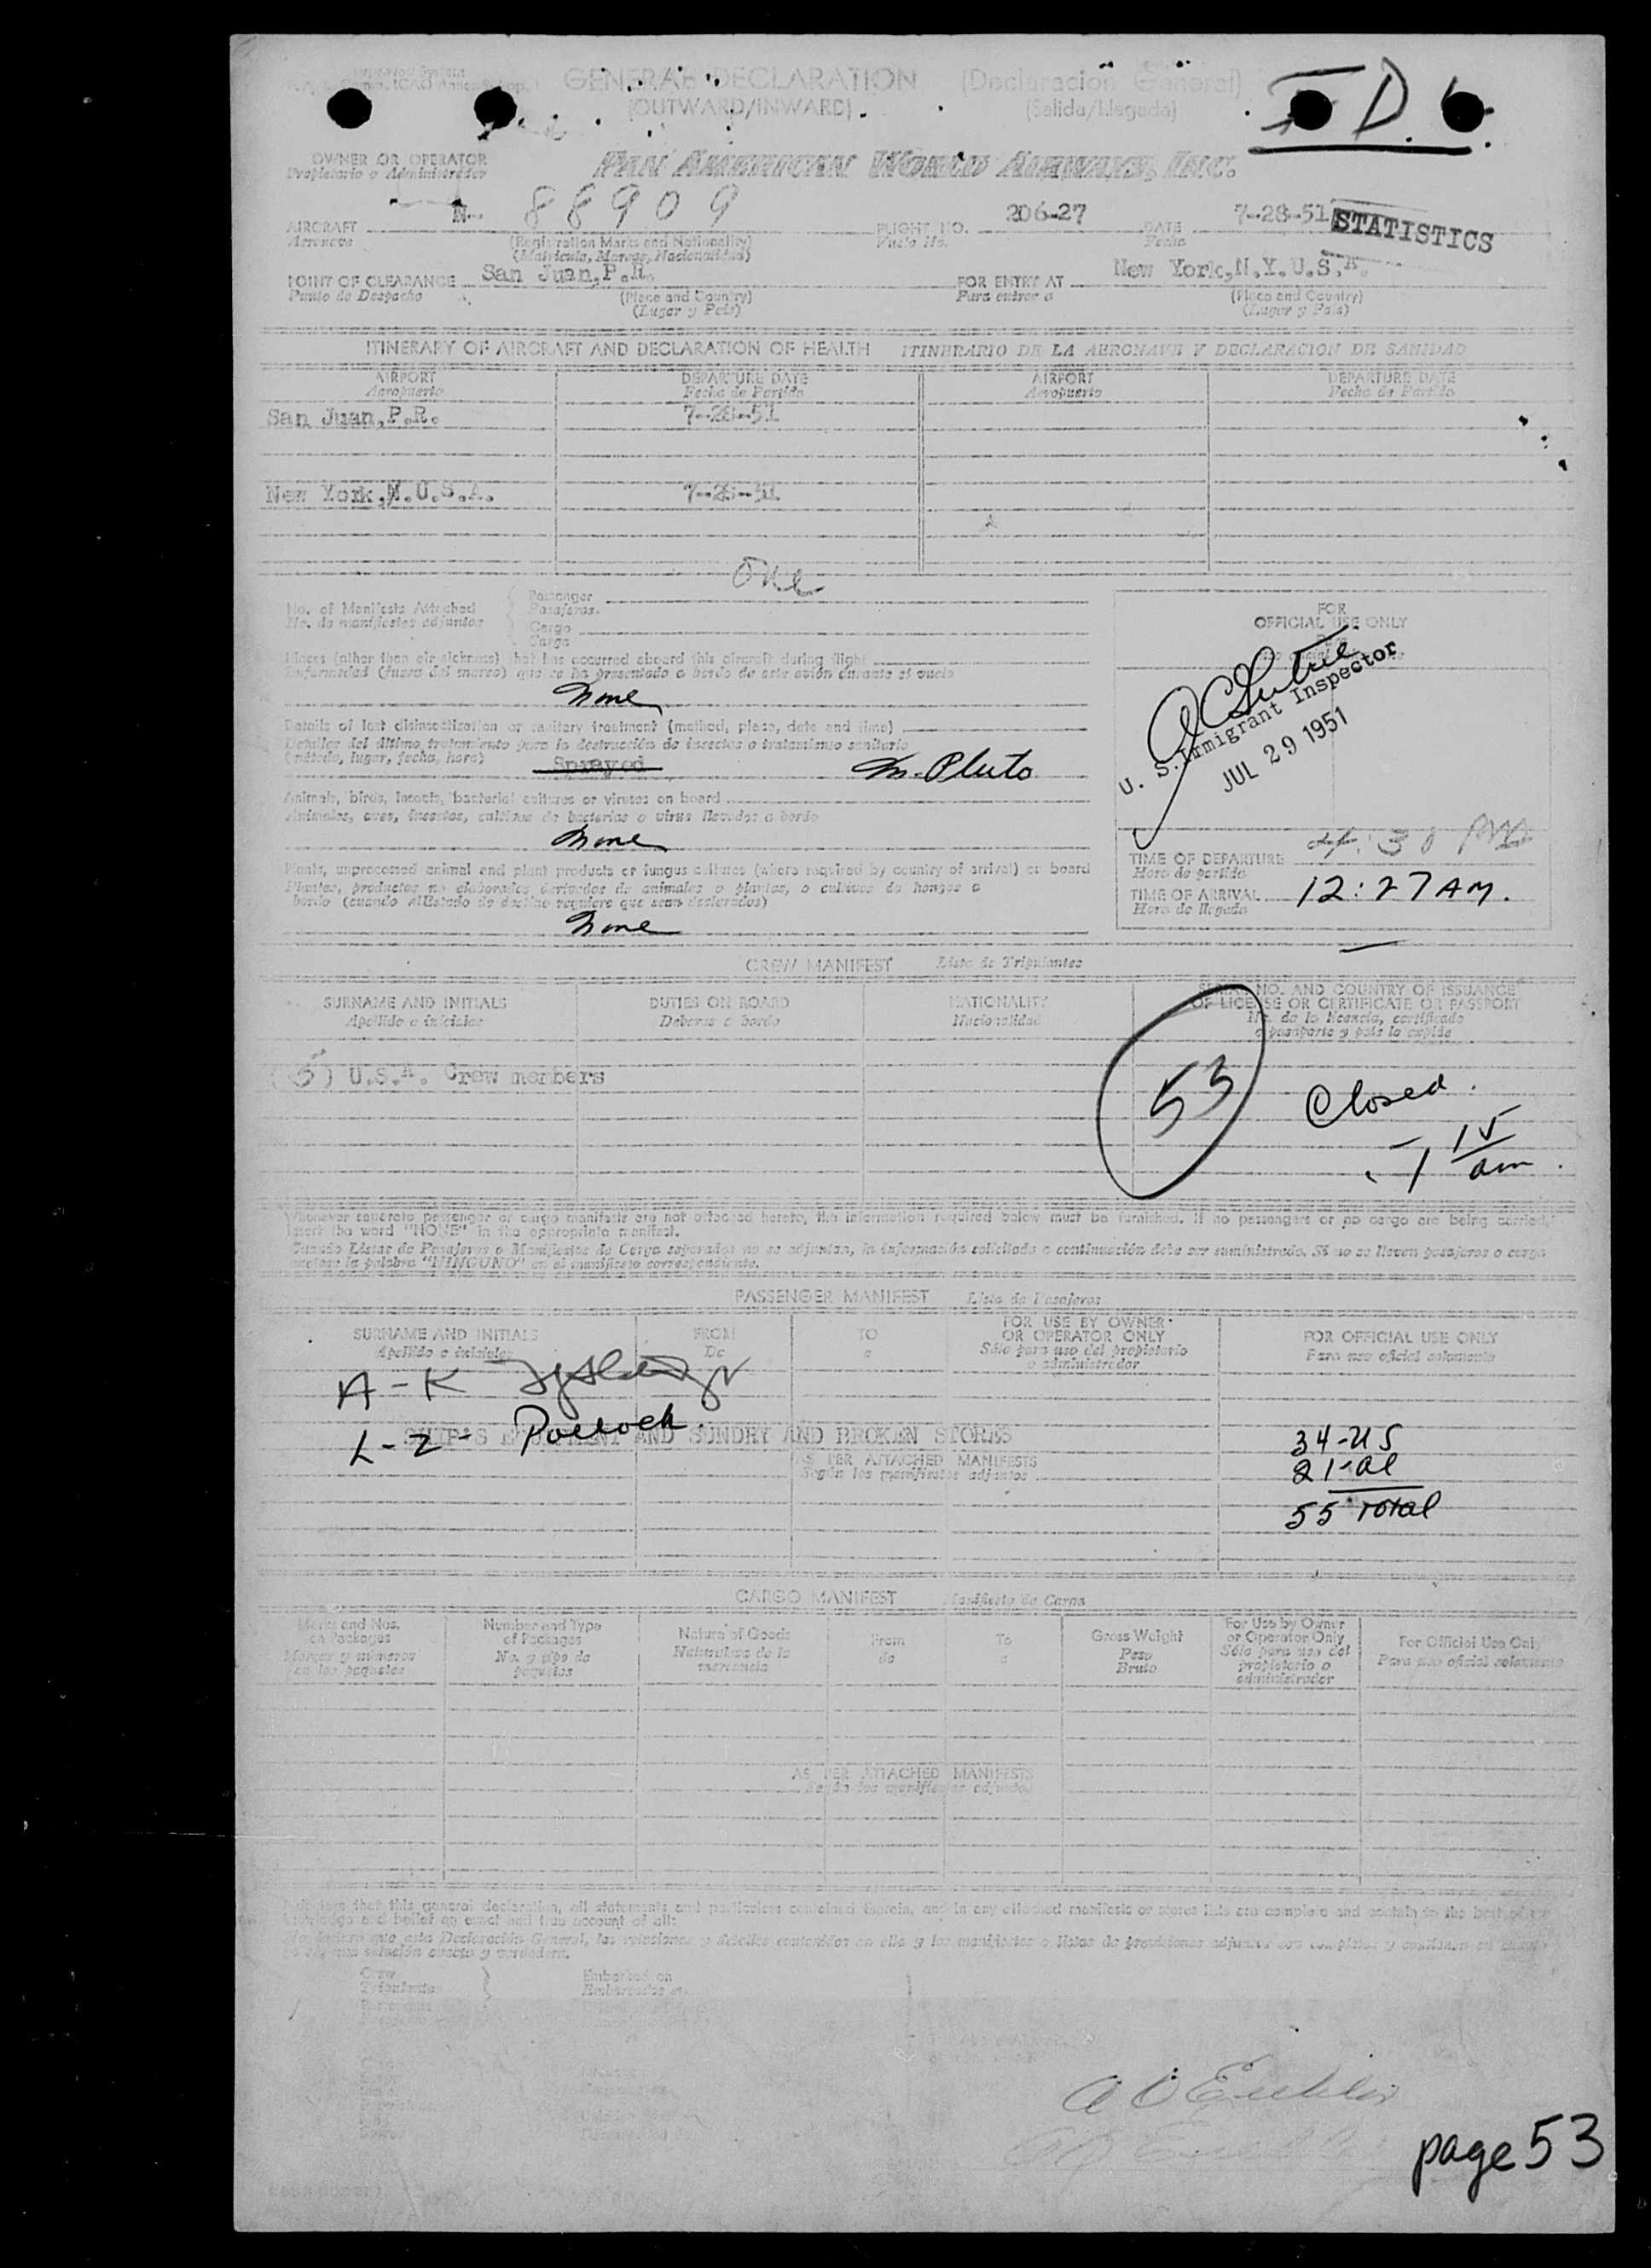 GENERAL DECLARATION (Declaración General)
(OUTWARD/INWARD) (Salida/Llegada)
D.
OWNER OR OPERATOR PAN AMERICAN WORLD AIRWAYS, INC.
Propietario o Administrador
AIRCRAFT N- 88909 FLIGHT NO. 206-27 DATE 7-28-51 STATISTICS
Aeronave (Registration Marks and Nationality) Vuelo No. Fecha
(Matrícula, Marcas, Nacionalidad)
POINT OF CLEARANCE San Juan,P.R. FOR ENTRY AT New York,N.Y.U.S.A.
Punto de Despacho (Place and Country) Para entrar a (Place and Country)
(Lugar y País) (Lugar y País)
ITINERARY OF AIRCRAFT AND DECLARATION OF HEALTH ITINERARIO DE LA AERONAVE Y DECLARACION DE SANIDAD
AIRPORT DEPARTURE DATE AIRPORT DEPARTURE DATE
Aeropuerto Fecha de Partida Aeropuerto Fecha de Partida
San Juan,P.R. 7-28-51
New York,N.U.S.A.
One
No. of Manifests Attached Passenger
No. de manifiestos adjuntos Pasajeros
Cargo
Carga
FOR
OFFICIAL USE ONLY
Illness (other than air sickness) that has occurred aboard this aircraft during flight
Enfermedad (fuera del mareo) que se ha presentado a bordo de este avión durante el vuelo
None
Details of last disinsectization or sanitary treatment (method, place, date and time)
Detalles del último tratamiento para la destrucción de insectos o tratamiento sanitario
(método, lugar, fecha, hora) Sprayed M. Pluto
U. S. Immigrant Inspector
JUL 29 1951
Animals, birds, insects, bacterial cultures or viruses on board
Animales, aves, insectos, cultivos de bacterias o virus llevados a bordo
None
Plants, unprocessed animal and plant products or fungus cultures (where required by country of arrival) on board
Plantas, productos no elaborados derivados de animales o plantas, o cultivos de hongos a
bordo (cuando el Estado de destino requiere que sean declarados)
None
TIME OF DEPARTURE 4:30 PM
Hora de partida
TIME OF ARRIVAL 12:27 AM.
Hora de llegada
CREW MANIFEST Lista de Tripulantes
SURNAME AND INITIALS DUTIES ON BOARD NATIONALITY SERIAL NO. AND COUNTRY OF ISSUANCE
OF LICENSE OR CERTIFICATE OR PASSPORT
Apellido e iniciales Deberes a bordo Nacionalidad No. de la licencia, certificado
o pasaporte y país lo expide
(5) U.S.A. Crew members
53 Closed
1 15
am
Whenever separate passenger or cargo manifests are not attached hereto, the information required below must be furnished. If no passengers or no cargo are being carried,
insert the word "NONE" in the appropriate manifest.
Cuando Listas de Pasajeros o Manifiestos de Carga separados no se adjuntan, la información solicitada a continuación debe ser suministrada. Si no se llevan pasajeros o carga
anótese la palabra "NINGUNO" en el manifiesto correspondiente.
PASSENGER MANIFEST Lista de Pasajeros
SURNAME AND INITIALS FROM TO FOR USE BY OWNER
OR OPERATOR ONLY FOR OFFICIAL USE ONLY
Apellido e iniciales De a Sólo para uso del propietario
o administrador Para uso oficial solamente
A - K
L - Z - Pollock.
SHIP'S EQUIPMENT AND SUNDRY AND BROKEN STORES
AS PER ATTACHED MANIFESTS
Según los manifiestos adjuntos
34-US
21-al
55 Total
CARGO MANIFEST Manifiesto de Carga
Marks and Nos.
on Packages
Marcas y números
en los paquetes
Number and Type
of Packages
No. y tipo de
paquetes
Nature of Goods
Naturaleza de la
mercancía
From
de
To
a
Gross Weight
Peso
Bruto
For Use by Owner
or Operator Only
Sólo para uso del
propietario o
administrador
For Official Use Only
Para uso oficial solamente
AS PER ATTACHED MANIFESTS
Según los manifiestos adjuntos
I declare that this general declaration, all statements and particulars contained therein, and in any attached manifests or stores lists are complete and contain to the best of my
knowledge and belief an exact and true account of all:
Crew Embarked on
Tripulantes
page 53